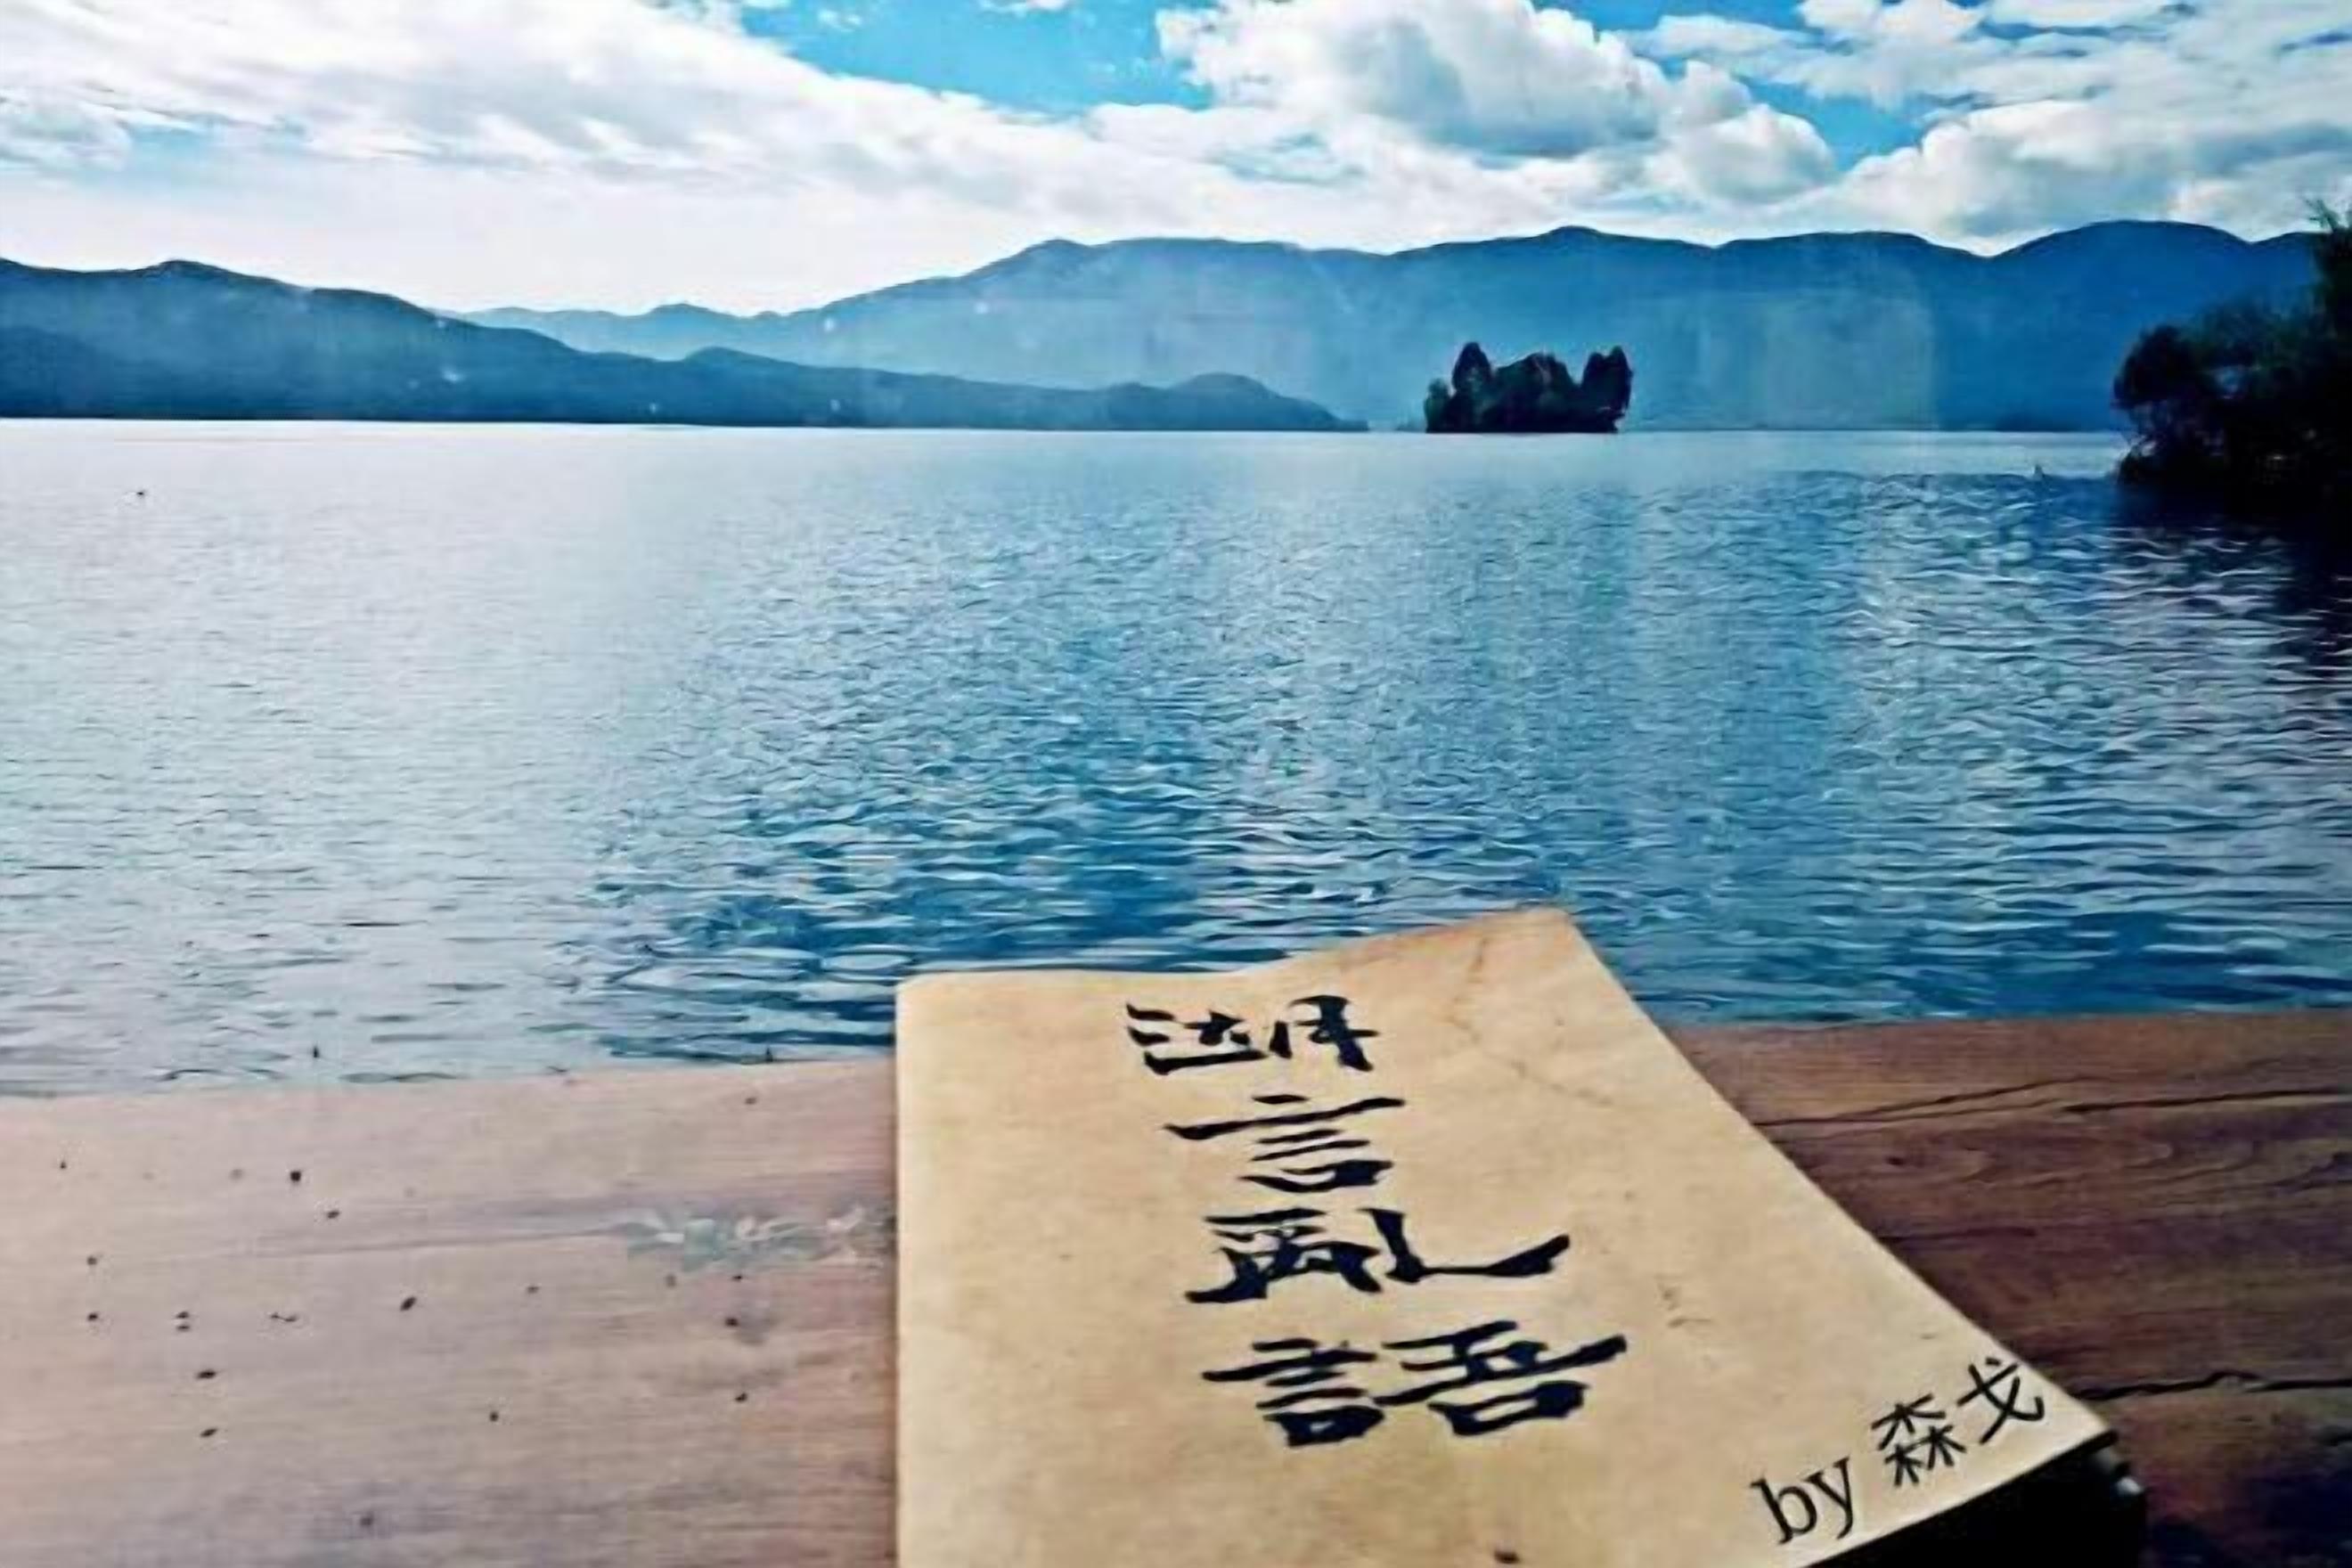 湖言亂語
by 森戈